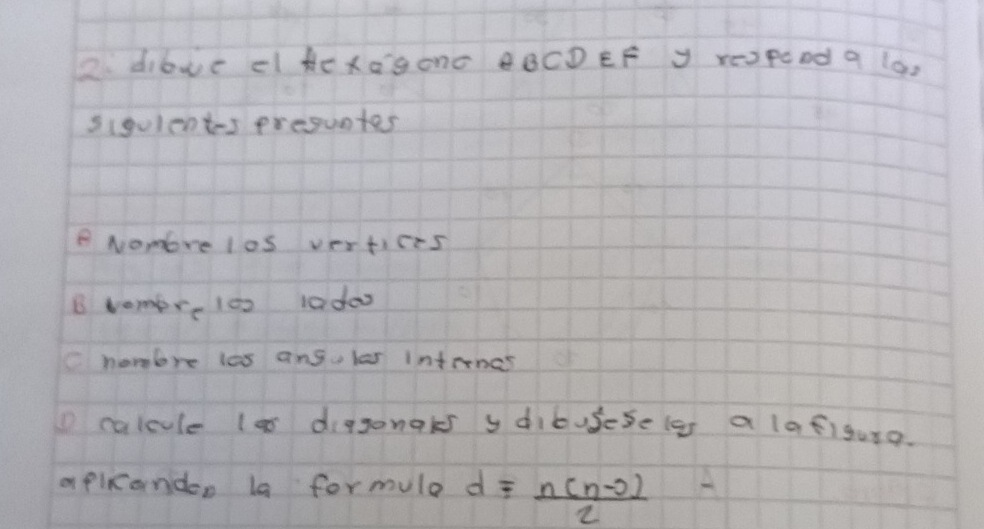 2. dibuje el Hexágono ABCDEF y responda las
siguientes preguntas
A Nombre los vertices
B nombre los lados
C nombre los angulos internos
D calcule las diagonales y dibujeselas a la figura.
aplicando la formula d =